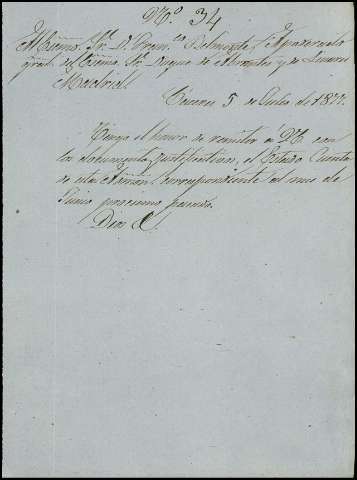 Nº. 34
Excmo. Sr. D. Franco. Belmonte, Apoderado
gral. del Excmo. Sr. Duque de Abrantes y de Linares
Madrid.
Caceres 5 de Julio de 1877.
Tengo el honor de remitir á V.E. con
los documentos justificativos, el Estado Cuenta
de esta Admon. correspondiente al mes de
Junio proximo pasado.
Dios &